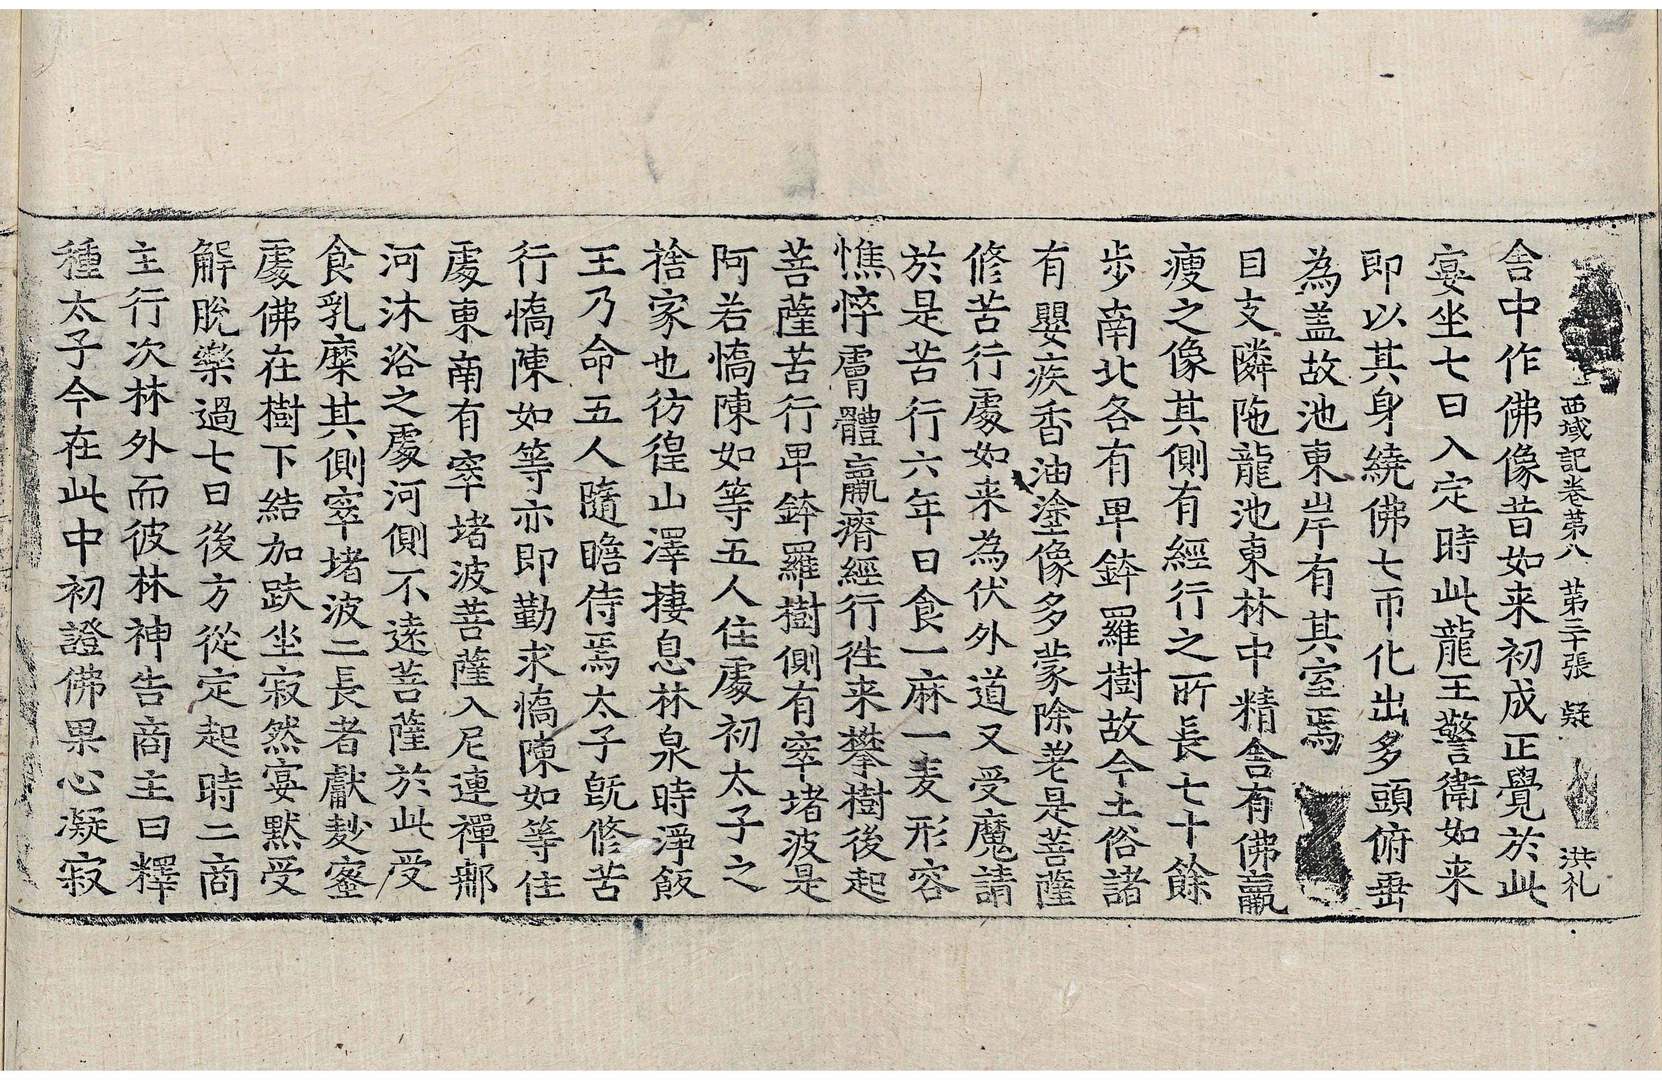 西域記卷第八 第三十張 疑 洪礼
舎中作佛像昔如来初成正覺於此
宴坐七日入定時此龍王警衛如来
即以其身繞佛七帀化出多頭俯垂
為盖故池東岸有其室焉
目支隣陁龍池東林中精舎有佛羸
瘦之像其側有經行之所長七十餘
步南北各有卑鉢羅樹故今土俗諸
有嬰疾香油塗像多蒙除差是菩薩
修苦行處如来為伏外道又受魔請
於是苦行六年日食一麻一麦形容
憔悴膚體羸瘠經行徃来攀樹後起
菩薩苦行卑鉢羅樹側有窣堵波是
阿若憍陳如等五人住處初太子之
捨家也彷徨山澤捿息林泉時淨飯
王乃命五人隨瞻侍焉太子旣修苦
行憍陳如等亦即勤求憍陳如等住
處東南有窣堵波菩薩入尼連禪郍
河沐浴之處河側不遠菩薩於此受
食乳糜其側窣堵波二長者獻麨蜜
處佛在樹下結加趺坐寂然宴默受
解脫樂過七日後方從定起時二商
主行次林外而彼林神告商主曰釋
種太子今在此中初證佛果心凝寂